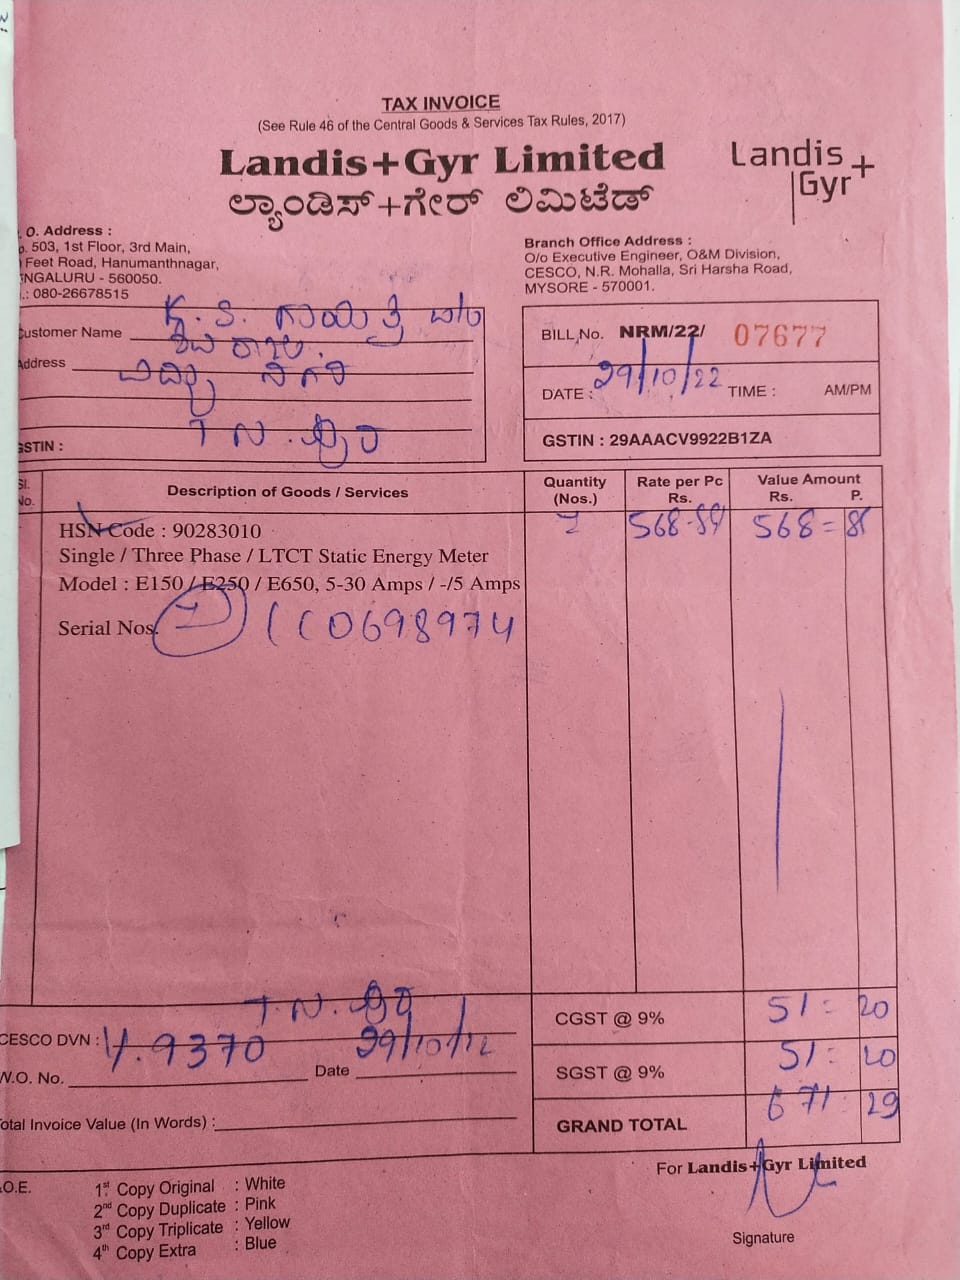 TAX INVOICE
(See Rule 46 of the Central Goods & Services Tax Rules, 2017)
Landis+Gyr Limited
ಲ್ಯಾಂಡಿಸ್+ಗೇರ್ ಲಿಮಿಟೆಡ್
Landis+
Gyr
O. Address :
503, 1st Floor, 3rd Main,
Feet Road, Hanumanthnagar,
NGALURU - 560050.
.: 080-26678515
Branch Office Address :
O/o Executive Engineer, O&M Division,
CESCO, N.R. Mohalla, Sri Harsha Road,
MYSORE - 570001.
ustomer Name
ddress
GSTIN :
BILL No. NRM/22/ 07677
DATE : 29/10/22 TIME : AM/PM
GSTIN : 29AAACV9922B1ZA
Sl. No. Description of Goods / Services Quantity (Nos.) Rate per Pc Rs. Value Amount Rs. P.
HSN Code : 90283010
Single / Three Phase / LTCT Static Energy Meter
Model : E150 / E250 / E650, 5-30 Amps / -/5 Amps
Serial Nos.
CGST @ 9% 51 = 20
CESCO DVN :
SGST @ 9% 51 = 20
W.O. No. Date
GRAND TOTAL 671 29
otal Invoice Value (In Words) :
For Landis+Gyr Limited
Signature
.O.E.
1st Copy Original : White
2nd Copy Duplicate : Pink
3rd Copy Triplicate : Yellow
4th Copy Extra : Blue